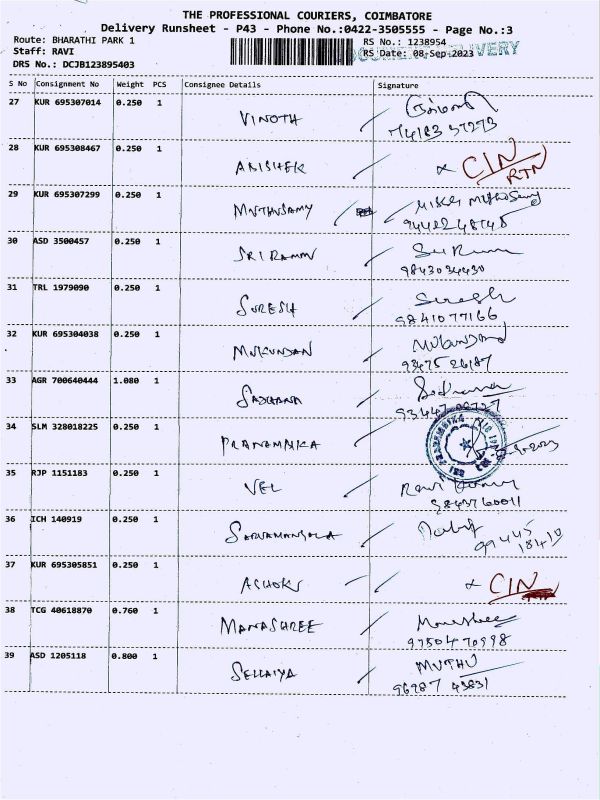 THE PROFESSIONAL COURIERS, COIMBATORE
Delivery Runsheet - P43 - Phone No.:0422-3505555 - Page No.:3
Route: BHARATHI PARK 1 RS No.: 1238954
Staff: RAVI RS Date: 08-Sep-2023 DELIVERY
DRS No.: DCJB123895403
S No Consignment No Weight PCS Consignee Details Signature
27 KUR 695307014 0.250 1 VINOTH
28 KUR 695308467 0.250 1 ABISHEK x CIN
RTN
29 KUR 695307299 0.250 1 MUTHUSAMY
30 ASD 3500457 0.250 1 SRIRAMAN
9843034430
31 TRL 1979090 0.250 1 SURESH Suresh
9841077166
32 KUR 695304038 0.250 1 MUKUNDAN
93475 26187
33 AGR 700640444 1.080 1 SADHANA Sadhana
34 SLM 328018225 0.250 1 PRANAMBIKA
35 RJP 1151183 0.250 1 VEL
9843760011
36 ICH 140919 0.250 1 SARVAMANGALA
99445
18410
37 KUR 695305851 0.250 1 ASHOK x CIN
38 TCG 40618870 0.760 1 MANASHREE Manashree
97504 70998
39 ASD 1205118 0.800 1 SELLAIYA MUTHU
96987 43831